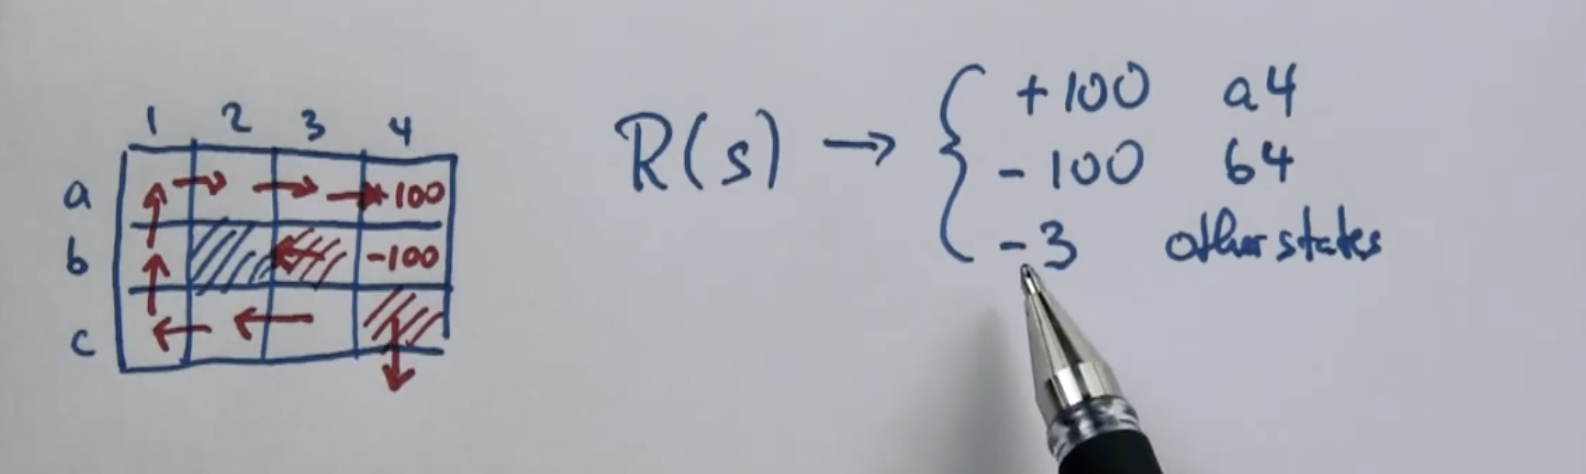 1 2 3 4
a +100
b -100
c
R(s) → { +100 a4
-100 b4
-3 other states